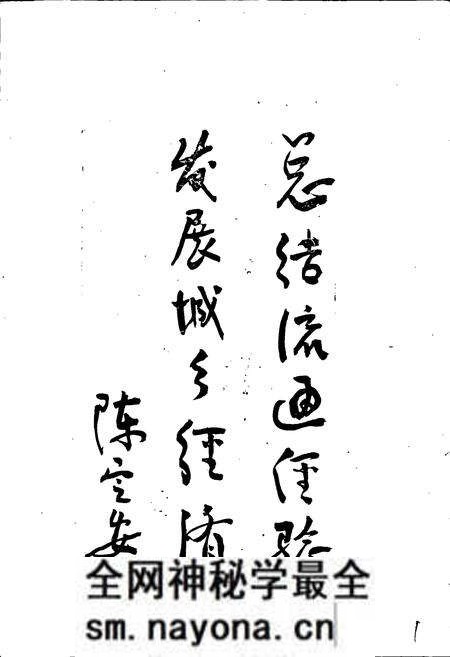 总结流通经验
发展城乡经济
陈定安
全网神秘学最全
sm.nayona.cn